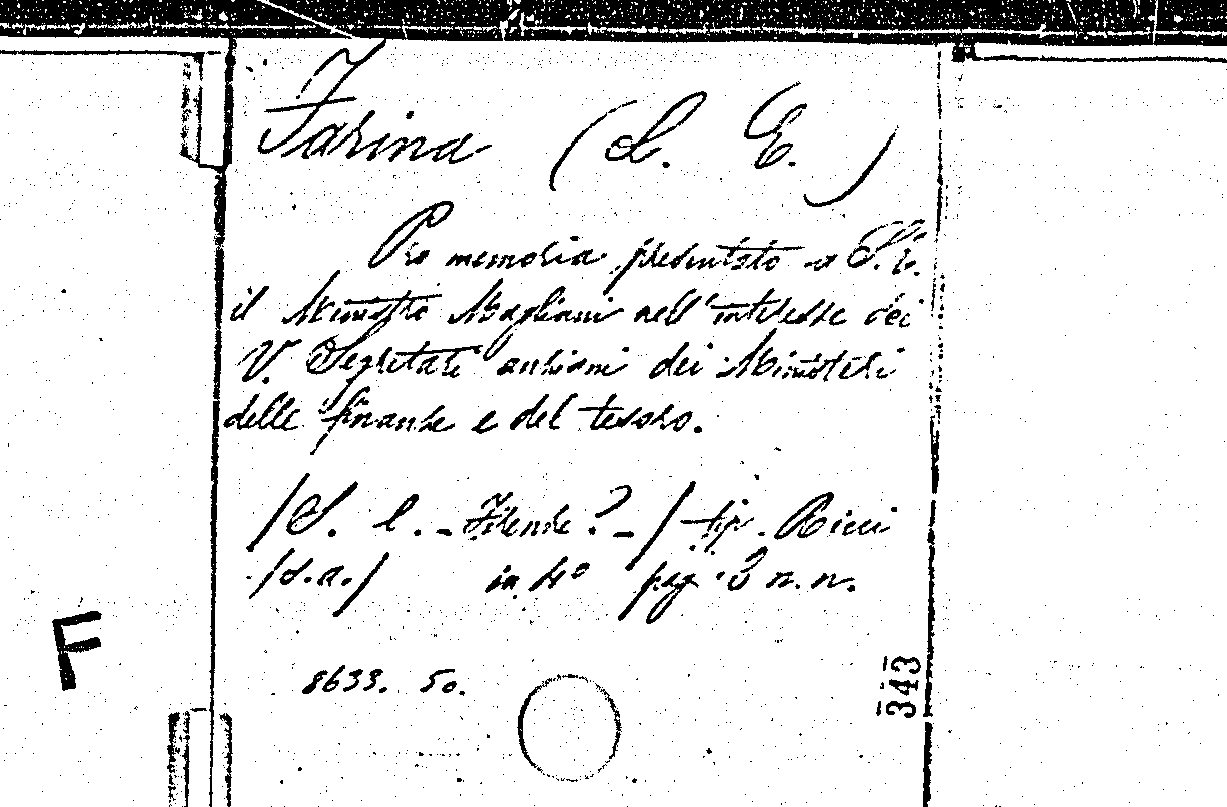 Farina (L. E.)
Pro memoria presentato a S. E.
il Ministro Magliani nell'interesse dei
V. Segretari anziani dei Ministeri
delle finanze e del tesoro.
/S. l. - Firenze? - / tip. Ricci
/s.a./ in 4° pag. 3 n. n.
8633. 50.
F
343